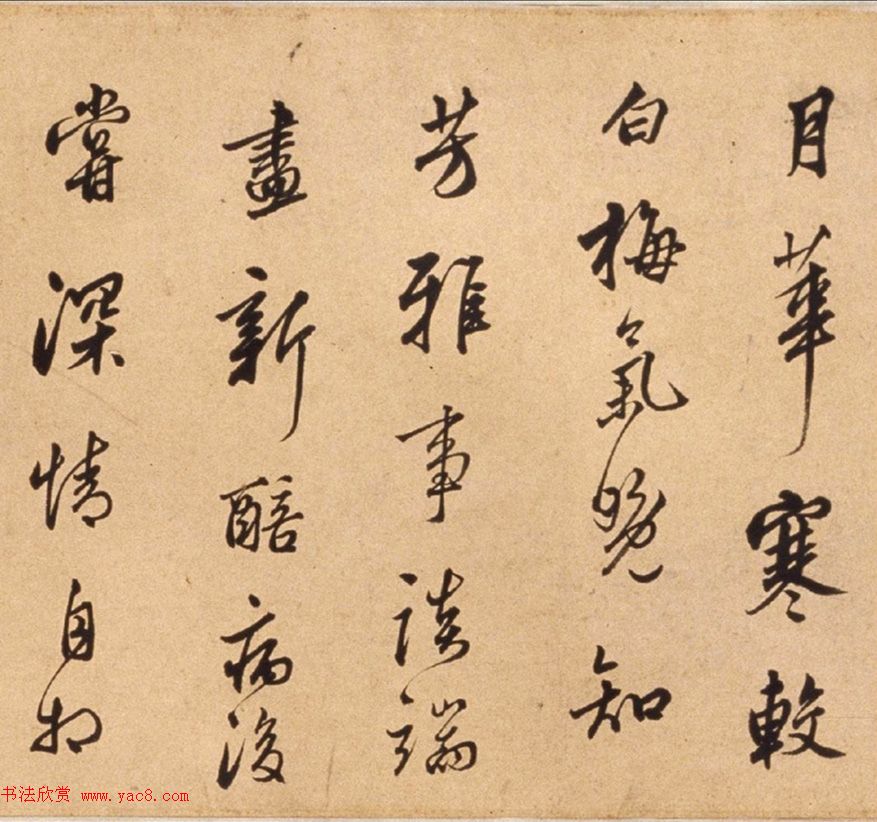 月華寒較
白梅氣晚知
芳雅事談端
盡新醅病後
嘗深情自扣
书法欣赏 www.yac8.com